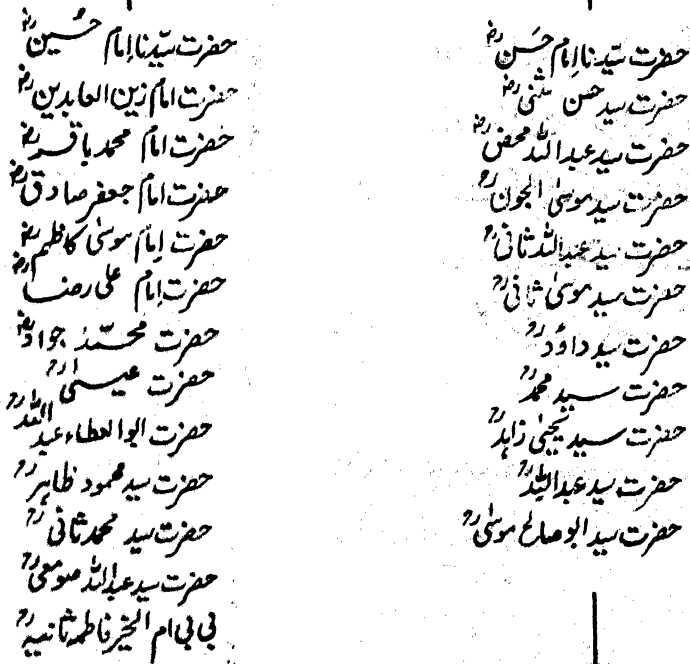 حضرت سیّدنا امام حَسنؓ
حضرت سید حسن مثنیٰؓ
حضرت سید عبداللہ محضؓ
حضرت سید موسیٰ الجونؒ
حضرت سید عبداللہ ثانیؒ
حضرت سید موسیٰ ثانیؒ
حضرت سید داؤدؒ
حضرت سید محمدؒ
حضرت سید یحییٰ زاہدؒ
حضرت سید عبداللہؒ
حضرت سید ابو صالح موسیٰؒ
حضرت سیّدنا اِمام حُسینؓ
حضرت امام زین العابدینؓ
حضرت امام محمد باقرؓ
حضرت امام جعفر صادقؓ
حضرت اِمام موسیٰ کاظمؓ
حضرت اِمام علی رضاؓ
حضرت محمّد جوادؓ
حضرت عیسیٰؒ
حضرت ابوالعطاء عبداللہؒ
حضرت سید محمود ظاہرؒ
حضرت سید محمد ثانیؒ
حضرت سید عبداللہ صومعیؒ
بی بی ام الخیر فاطمہ ثانیہؒ